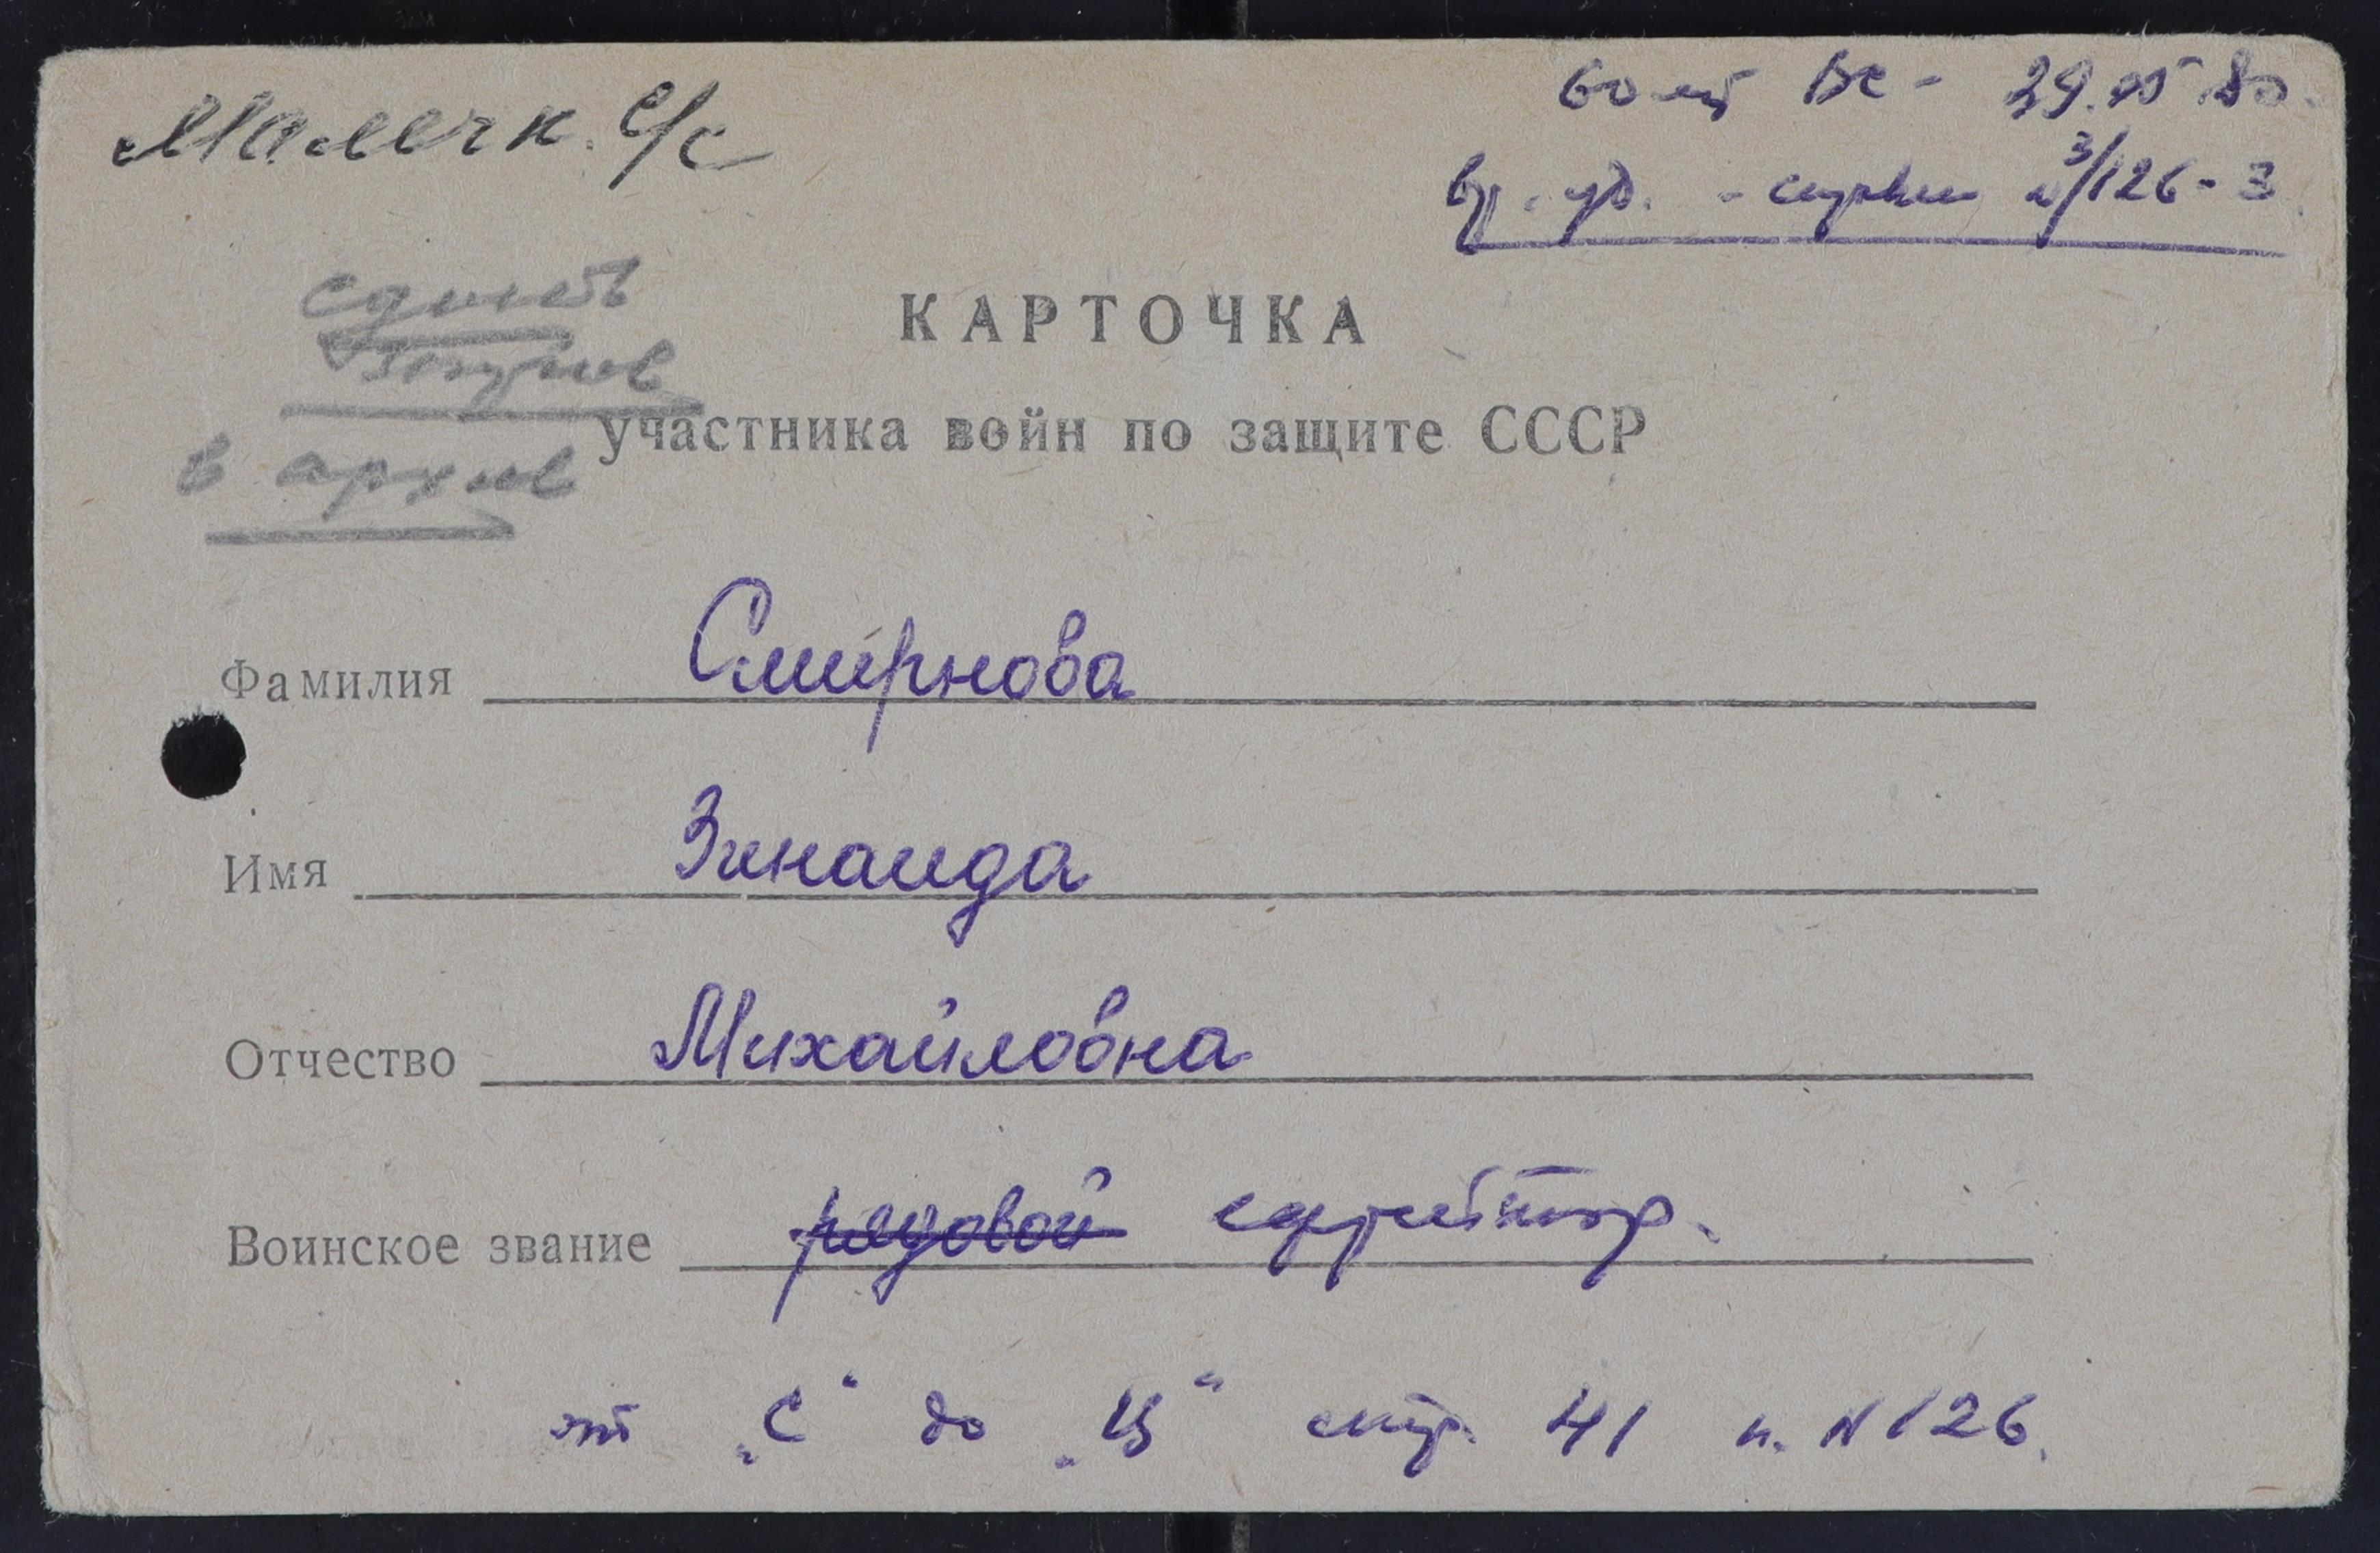 Малечк. с/с
60 лет ВС - 29.05.80.
вр. уд. - справки № 3/126-3
КАРТОЧКА
участника войн по защите СССР
в архив
Фамилия Смирнова
Имя Зинаида
Отчество Михайловна
Воинское звание рядовой ефрейтор.
от „С“ до „Ц“ стр. 41 п. N 126.